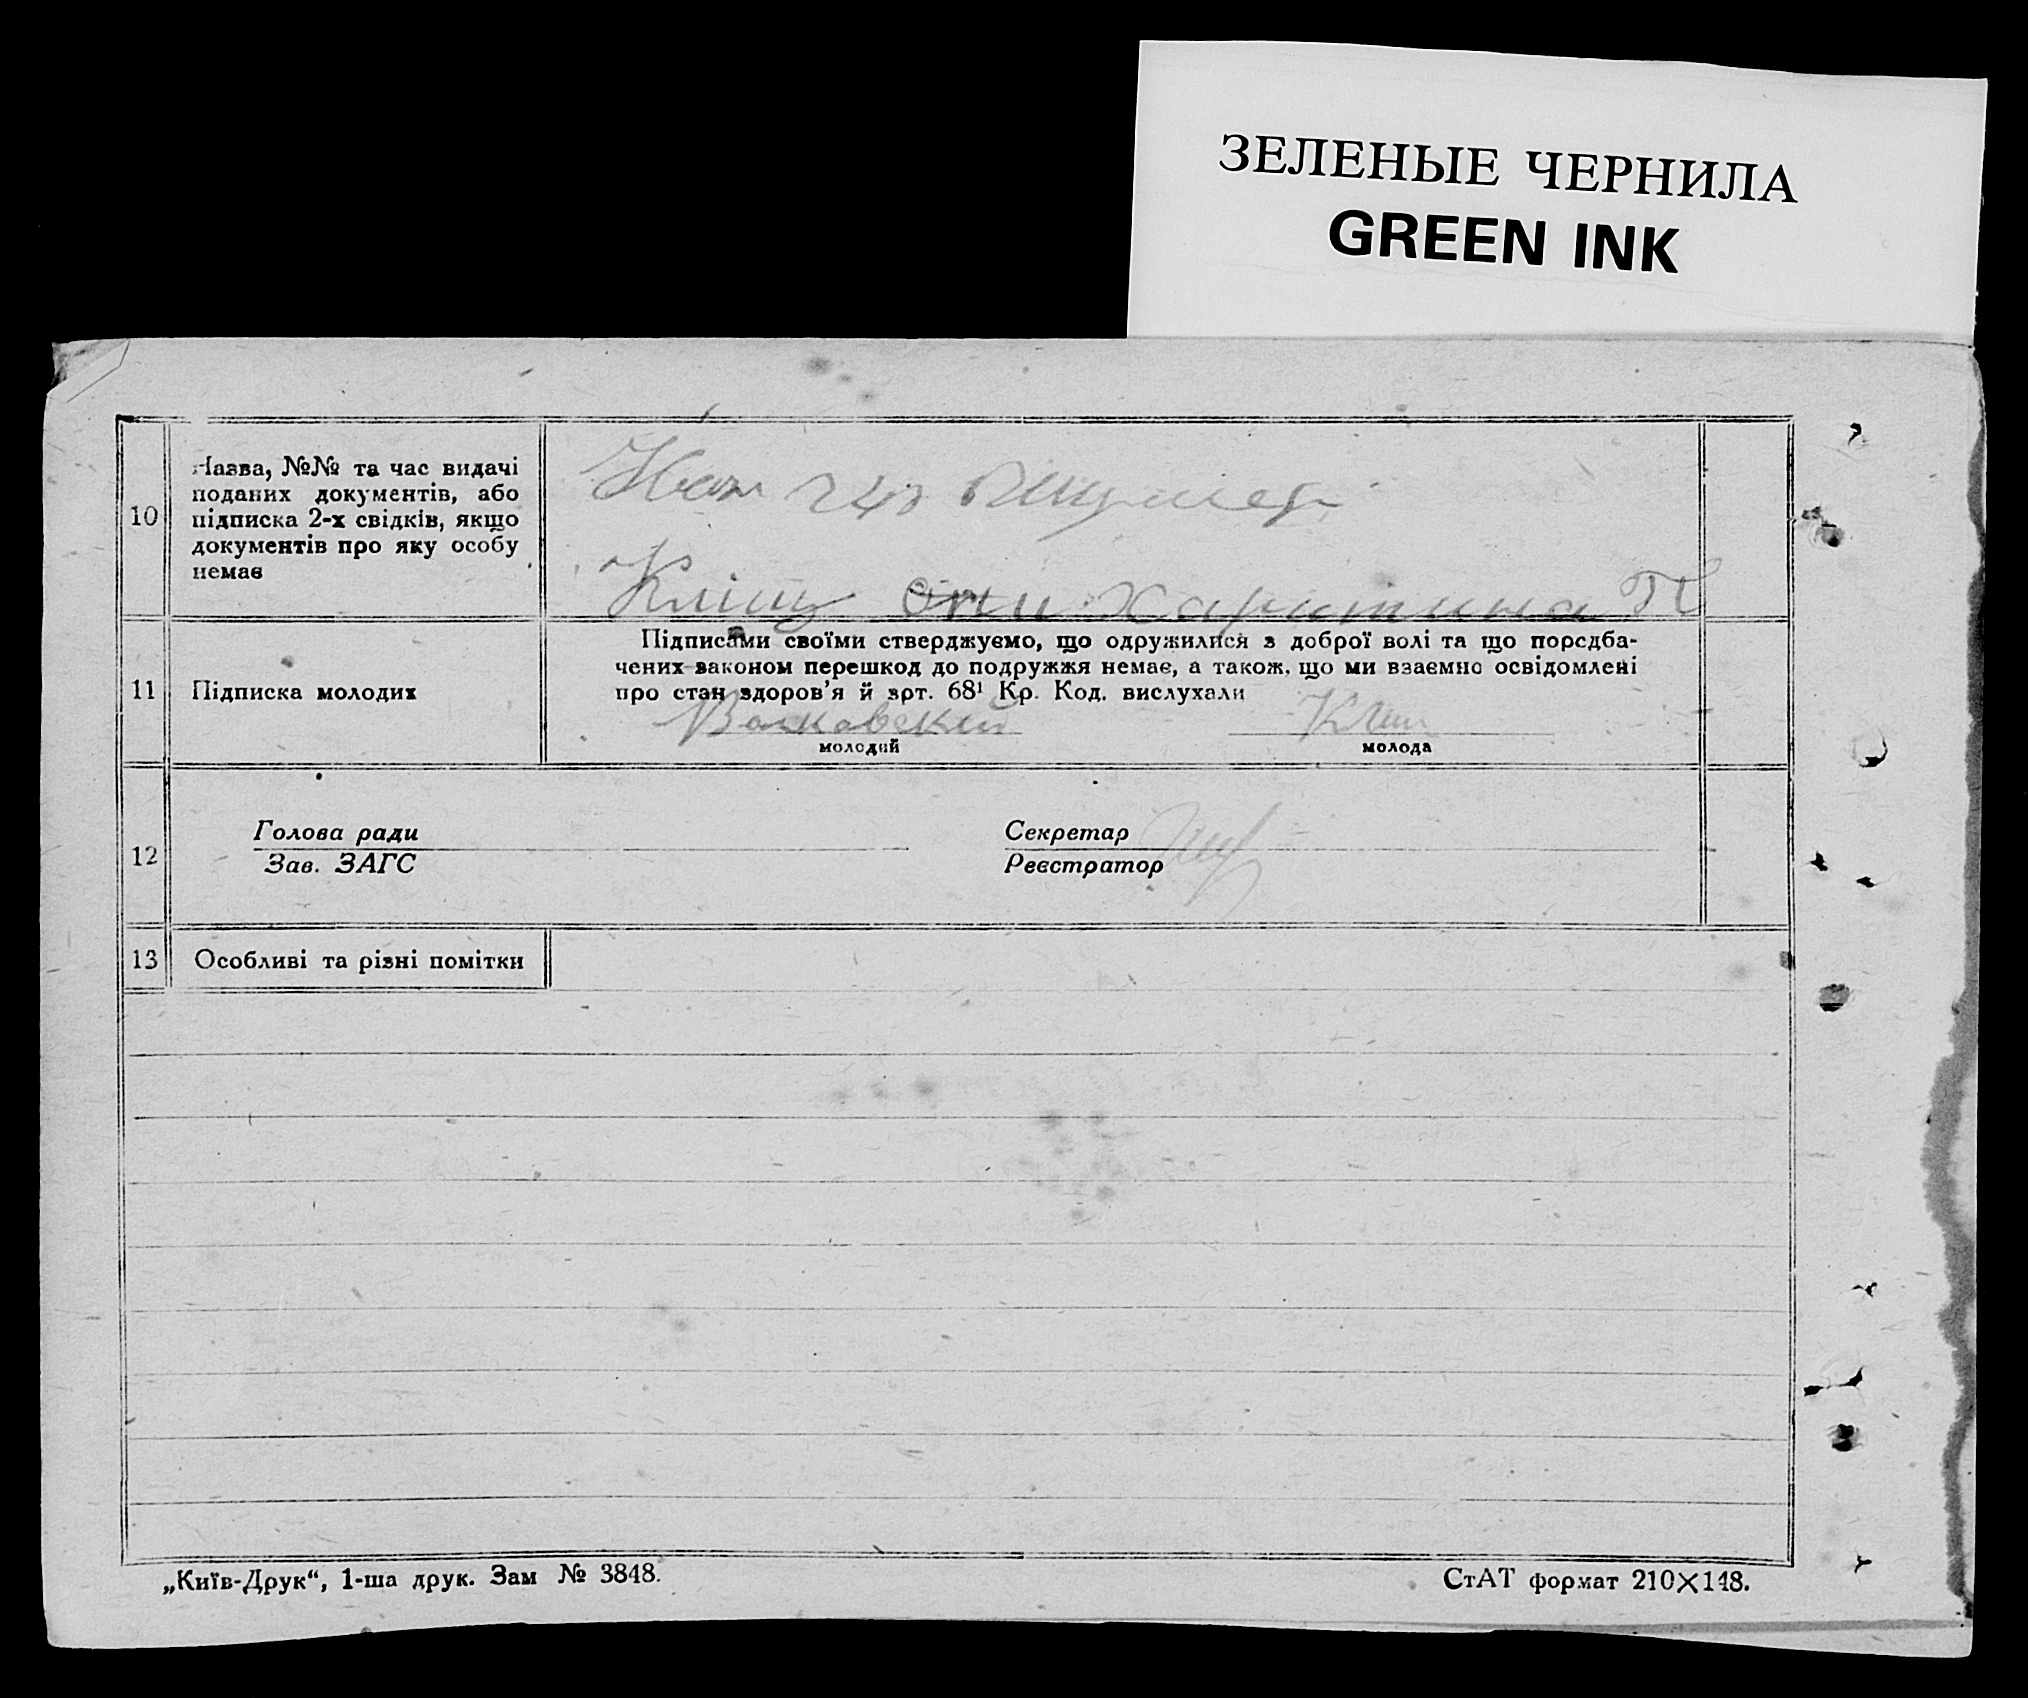 ЗЕЛЕНЫЕ ЧЕРНИЛА
GREEN INK
10
Назва, №№ та час видачі
поданих документів, або
підписка 2-х свідків, якщо
документів про яку особу
немає
Харитина П
11
Підписка молодих
Підписами своїми стверджуємо, що одружилися з доброї волі та що передба-
чених законом перешкод до подружжя немає, а також, що ми взаємно освідомлені
про стан здоров'я й арт. 68¹ Кр. Код. вислухали
Волковский
молодий
молода
12
Голова ради
Зав. ЗАГС
Секретар
Реєстратор
13
Особливі та різні помітки
„Київ-Друк“, 1-ша друк. Зам № 3848.
СтАТ формат 210×148.